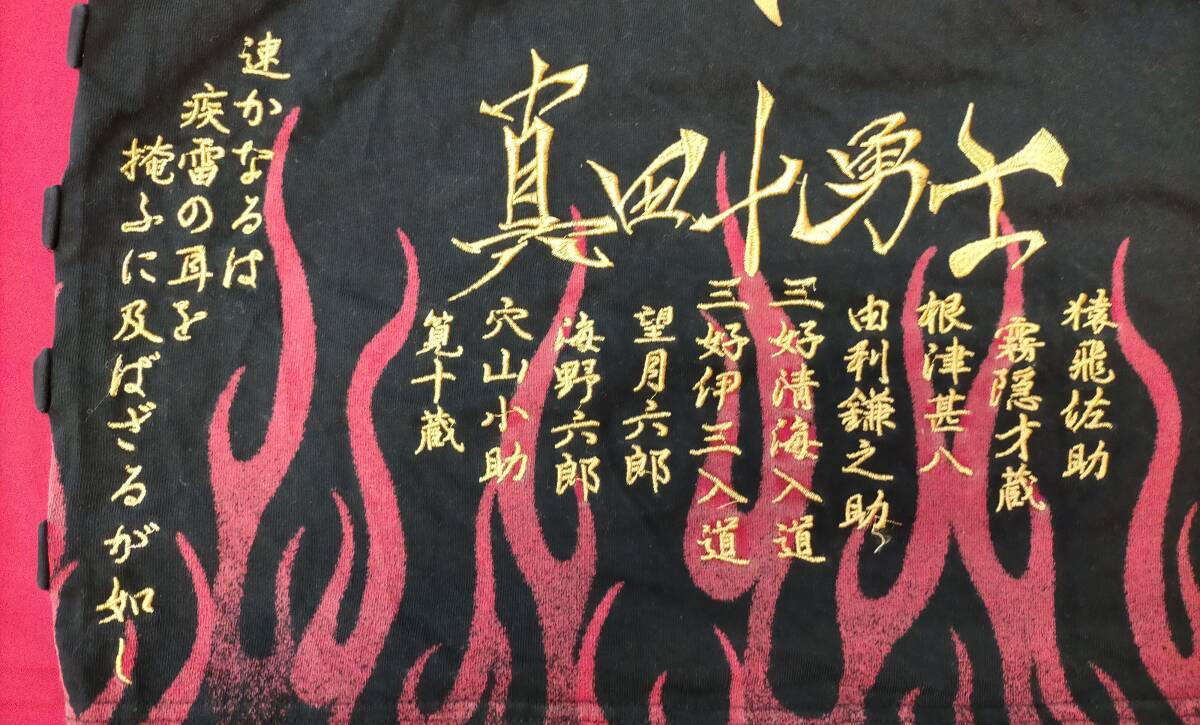 真田十勇士
猿飛佐助
霧隠才蔵
根津甚八
由利鎌之助
三好清海入道
三好伊三入道
望月六郎
海野六郎
穴山小助
筧十蔵
速かなるは
疾雷の耳を
掩ふに及ばざるが如し